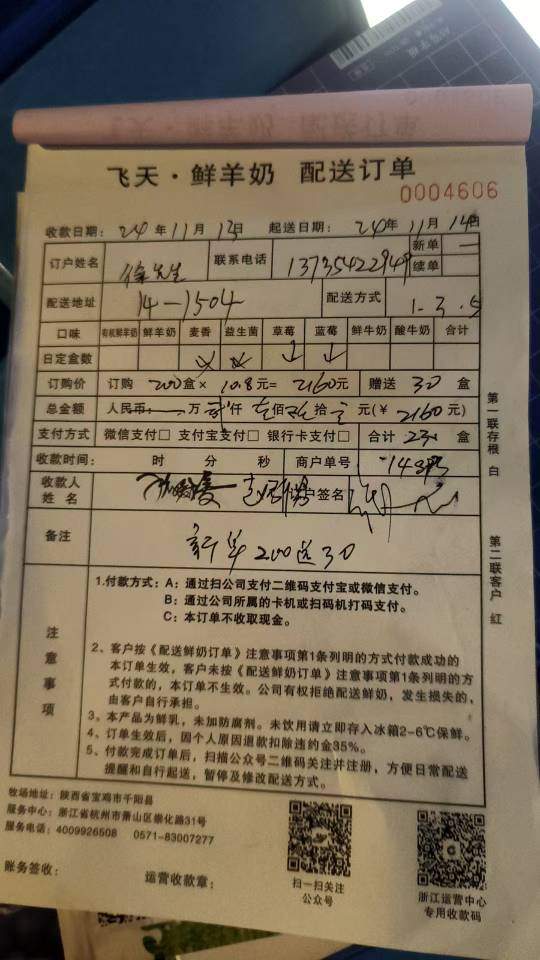 飞天·鲜羊奶 配送订单
0004606
收款日期：24年11月13日 起送日期：24年11月14日
订户姓名 徐先生 联系电话 13735422949 新单 续单
配送地址 14-1504 配送方式 1.3.5
口味 有机鲜羊奶 鲜羊奶 麦香 益生菌 草莓 蓝莓 鲜牛奶 酸牛奶 合计
日定盒数
订购价 订购 200盒× 10.8元= 2160元 赠送 30 盒
总金额 人民币 万 贰仟 壹佰 陆拾 元(￥ 2160元)
支付方式 微信支付□ 支付宝支付□ 银行卡支付□ 合计 230 盒
收款时间： 时 分 秒 商户单号
收款人姓名 订户签名
备注 新单200送30
第一联存根 白
第二联客户 红
注意事项
1.付款方式：A：通过扫公司支付二维码支付宝或微信支付。
B：通过公司所属的卡机或扫码机打码支付。
C：本订单不收取现金。
2、客户按《配送鲜奶订单》注意事项第1条列明的方式付款成功的
本订单生效，客户未按《配送鲜奶订单》注意事项第1条列明的方
式付款的，本订单不生效。公司有权拒绝配送鲜奶，发生损失的，
由客户自行承担。
3、本产品为鲜乳，未加防腐剂。未饮用请立即存入冰箱2-6℃保鲜。
4、订单生效后，因个人原因退款扣除违约金35%。
5、付款完成订单后，扫描公众号二维码关注并注册，方便日常配送
提醒和自行起送，暂停及修改配送方式。
牧场地址：陕西省宝鸡市千阳县
服务中心：浙江省杭州市萧山区崇化路31号
服务电话：4009926508 0571-83007277
账务签收： 运营收款章：
扫一扫关注
公众号
浙江运营中心
专用收款码